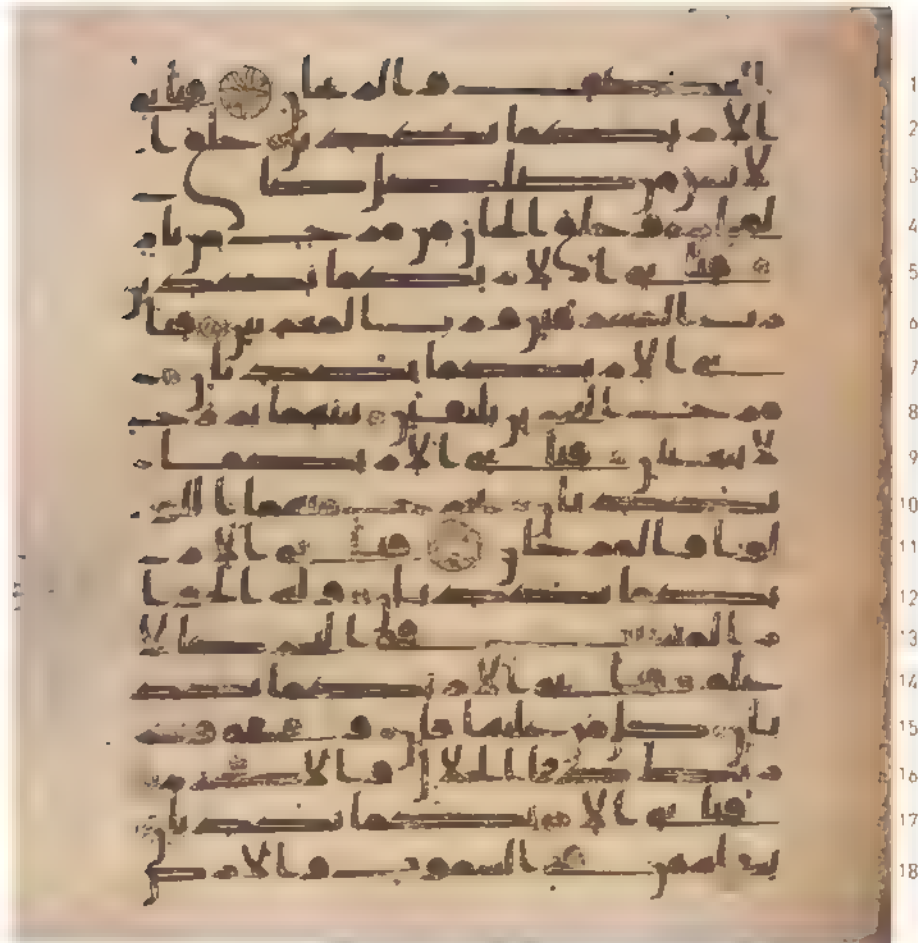 1 العصف والريحان فباي
2 الا ربكما تكذبان خلق ا
3 لانسن من صلصل كا
4 لفخار وخلق الجان من مرج من نار
5 فباي الا ربكما تكذبان
6 رب المشرقين ورب المغربين فبا
7 ي الا ربكما تكذبان مر
8 ج البحرين يلتقين بينهما برزخ
9 لا يبغيان فباي الا ربكما
10 تكذبان يخرج منهما اللو
11 لوا والمرجان فباي الا ر
12 بكما تكذبان وله الجوا
13 ر المنشات في البحر كالا
14 علم فباي الا ربكما تكذ
15 بان كل من عليها فان ويبقى وجه
16 ربك ذوا الجلل والاكرم
17 فباي الا ربكما تكذبان
18 يسله من في السموت والارض